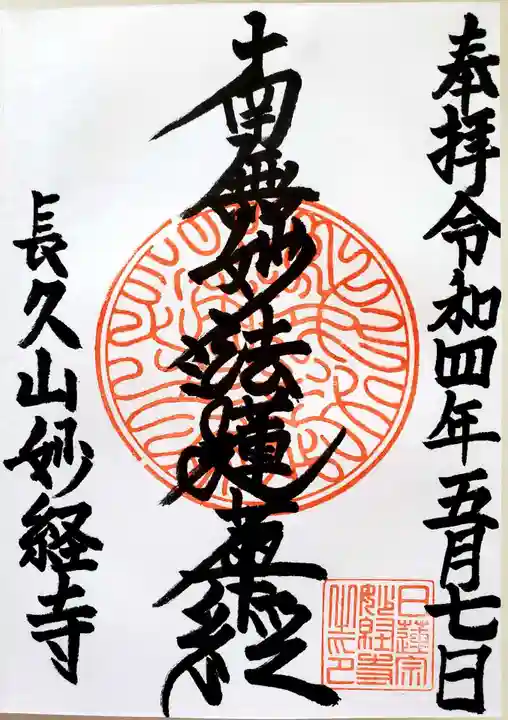 奉拝令和四年五月七日
南無妙法蓮華経
長久山妙経寺
日蓮宗
妙経寺
之印